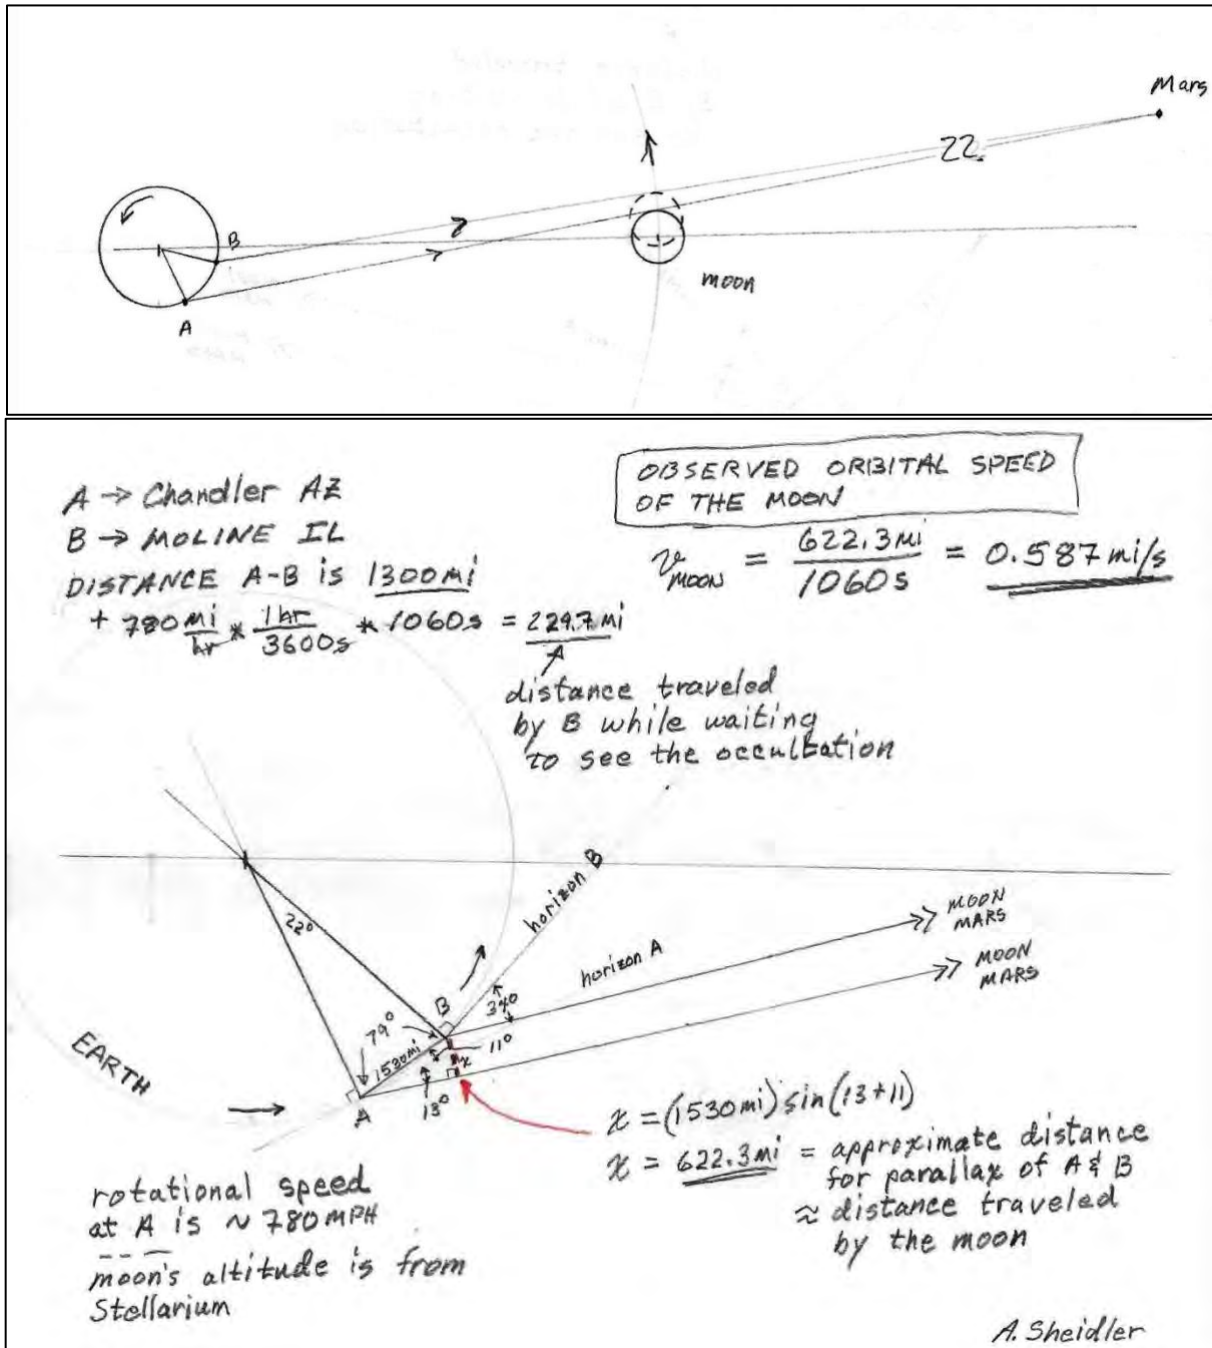 Mars
22.
B
moon
A
A → Chandler AZ
B → MOLINE IL
DISTANCE A-B is 1300mi
+ 780 mi/hr * 1hr/3600s * 1060s = 229.7 mi
distance traveled
by B while waiting
to see the occultation
OBSERVED ORBITAL SPEED
OF THE MOON
v MOON = 622.3mi/1060s = 0.587 mi/s
horizon B
22°
MOON
MARS
horizon A
MOON
MARS
B
34°
79°
11°
1530mi
x
EARTH
A
13°
x = (1530mi) sin(13+11)
x = 622.3mi = approximate distance
for parallax of A & B
≈ distance traveled
by the moon
rotational speed
at A is ~ 780 MPH
moon's altitude is from
Stellarium
A. Sheidler